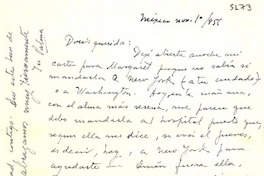 5273
México nov. 1º/956
Doris querida: Dejé abierta anoche mi
carta para Margaret porque no sabía si
mandarla a New York (tu ciudad)
o a Washington. Hoy en la mañana,
con el alma más serena, me parece que
debo mandarla al hospital puesto que,
según ella me dice, se irá el jueves,
es decir, hoy, a New York para
ayudarte — Quién fuera ella,
abrazamos muy tiernamente
Tu Palma